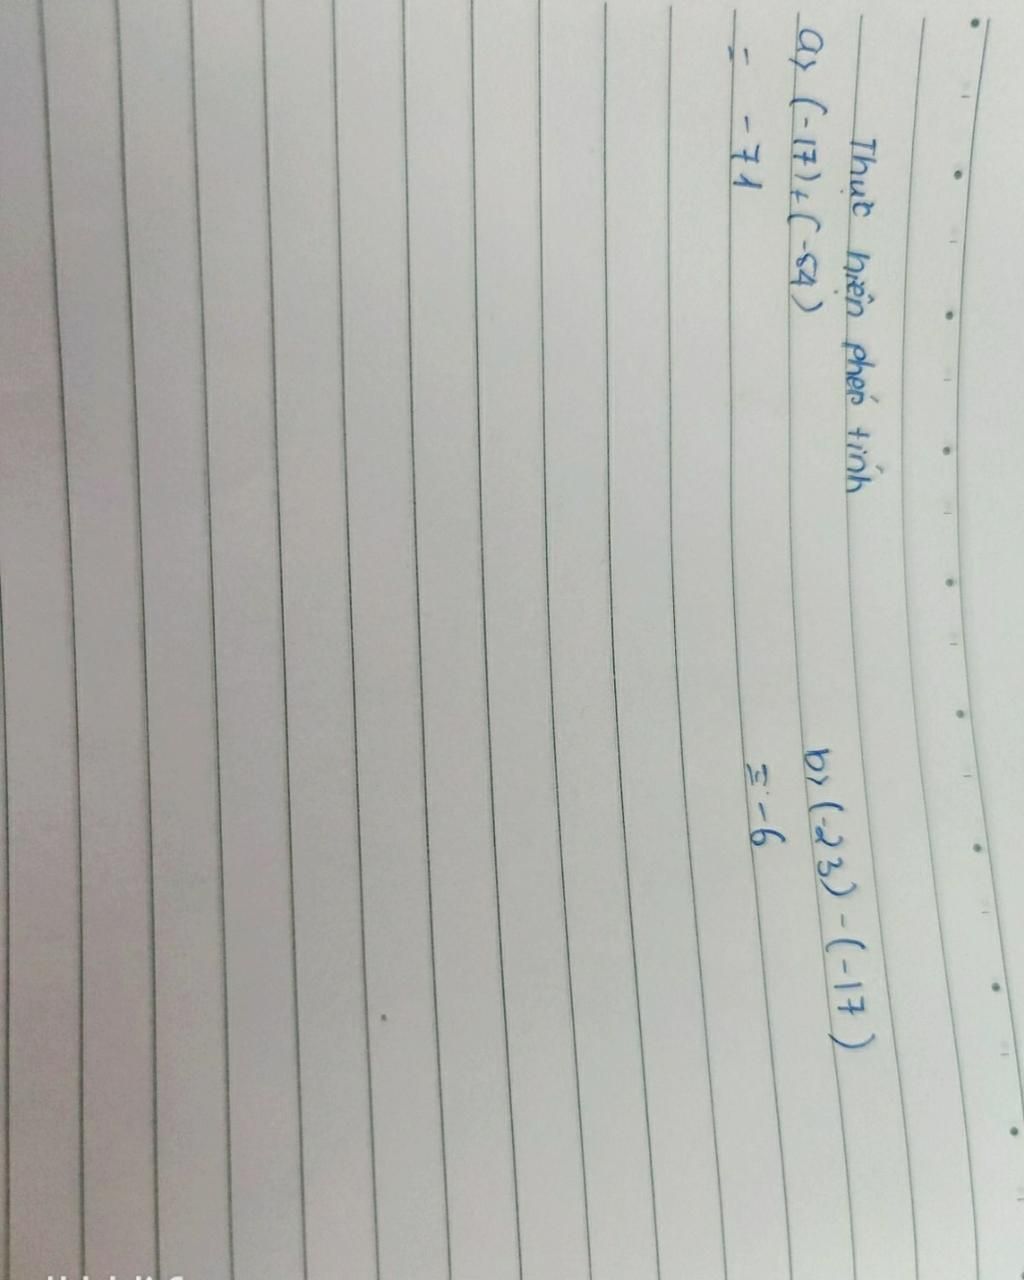 Thực hiện phép tính
a) (-17) + (-54) b) (-23) - (-17)
= -71 = -6